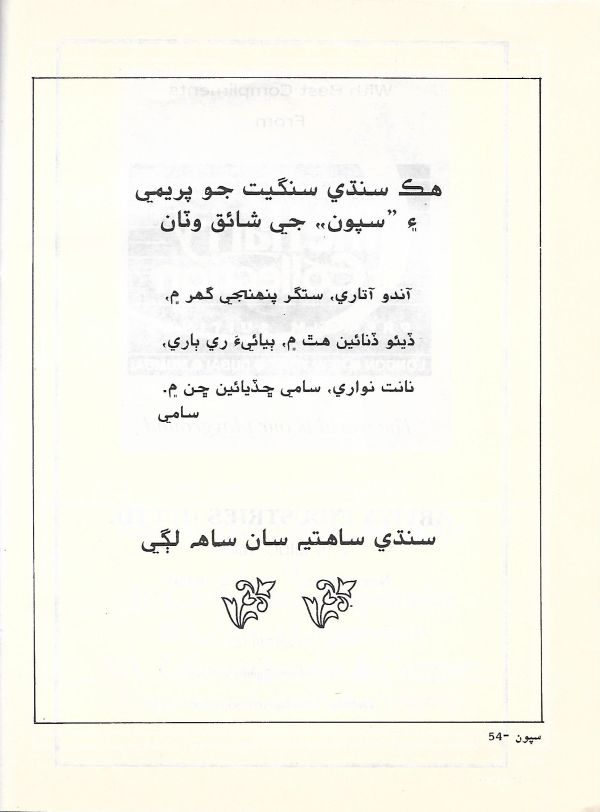 هڪ سنڌي سنگيت جو پريمي
۽ ”سپون„ جي شائق وٽان
آندو آتاري، ستگر پنهنجي گهر ۾،
ڏيئو ڏنائين هٿ ۾، ٻيائيءَ ري ٻاري،
نانت نواري، سامي ڇڏيائين ڇن ۾.
سامي
سنڌي ساهتيہ سان ساهہ لڳي
سپون -54
With Best Compliments
From